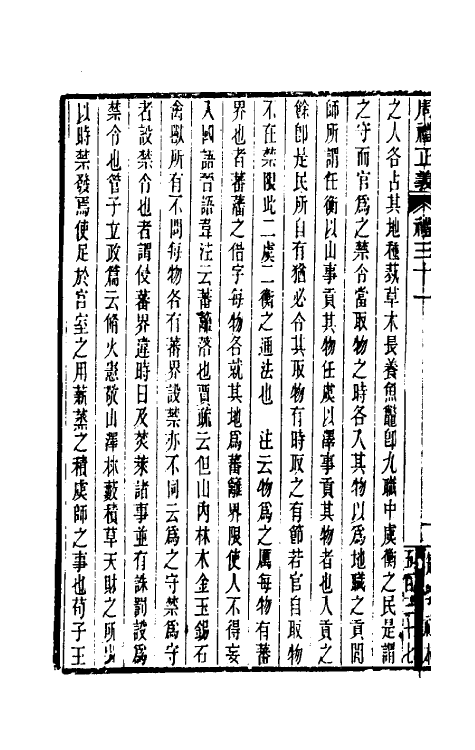 周禮正義 禮三十一
之人各占其地種蓺草木長養魚鼈卽九職中虞衡之民是謂
之守而官爲之禁令當取物之時各入其物以爲地職之貢閭
師所謂任衡以山事貢其物任虞以澤事貢其物者也入貢之
餘卽是民所自有猶必令其取物有時取之有節若官自取物
不在禁限此二虞二衡之通法也 注云物爲之厲每物有蕃
界也者蕃藩之借字每物各就其地爲蕃籬界限使人不得妄
入國語晉語韋注云蕃籬落也賈疏云但山內林木金玉錫石
禽獸所有不同每物各有蕃界設禁亦不同云爲之守禁爲守
者設禁令也者謂侵蕃界違時日及焚萊諸事並有誅罰設爲
禁令也管子立政篇云脩火憲敬山澤林藪積草天財之所出
以時禁發焉使足於宮室之用薪蒸之積虞師之事也荀子王